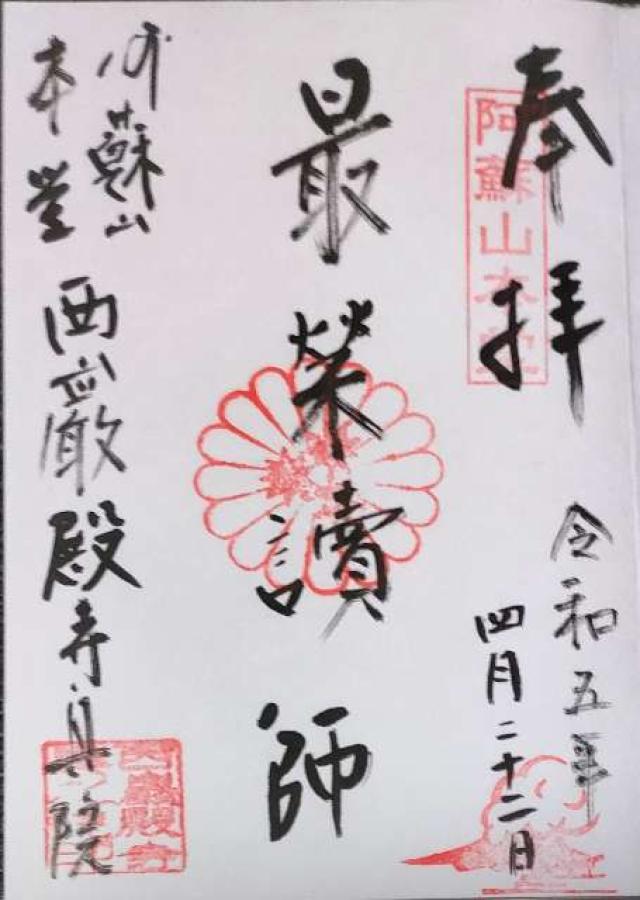 奉拝
阿蘇山本堂
令和五年
四月二十二日
最榮讀師
阿蘇山
本堂
西巌殿寺奥院
西巖殿寺